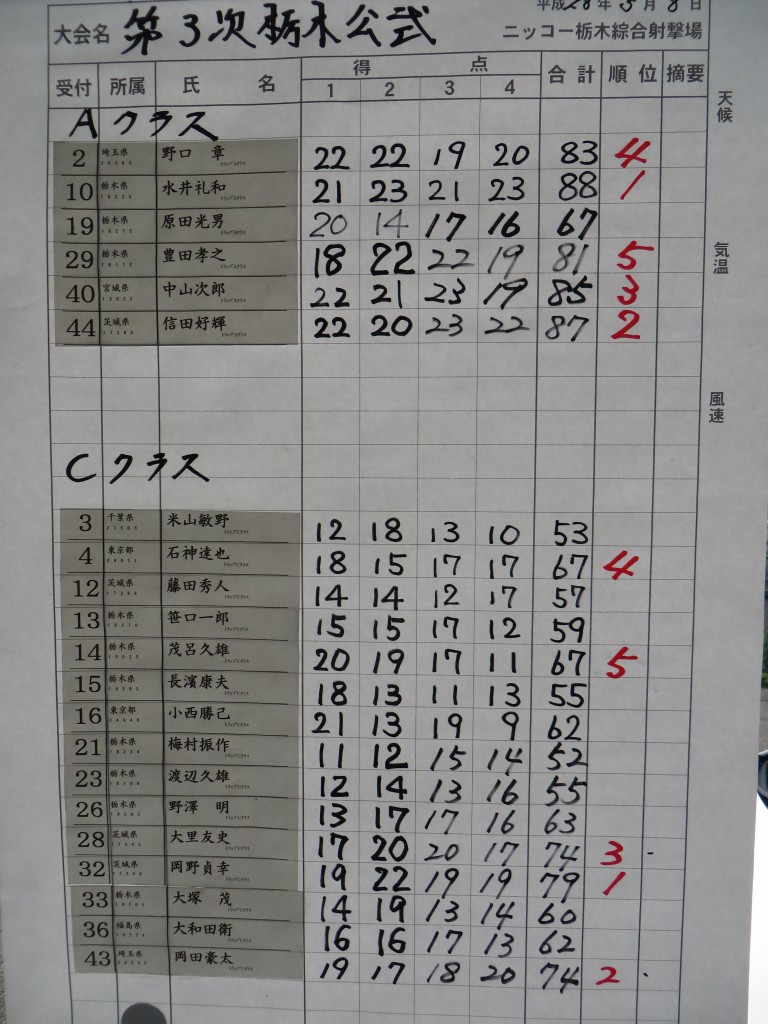 平成28年5月8日
大会名 第3次栃木公式 ニッコー栃木綜合射撃場
受付 所属 氏名 得点 合計 順位 摘要
1 2 3 4
天候
Aクラス
2 埼玉県 野口 章 22 22 19 20 83 4
10 栃木県 水井礼和 21 23 21 23 88 1
19 栃木県 原田光男 20 14 17 16 67
気温
29 栃木県 豊田孝之 18 22 22 19 81 5
40 宮城県 中山次郎 22 21 23 19 85 3
44 茨城県 信田好輝 22 20 23 22 87 2
風速
Cクラス
3 千葉県 米山敏野 12 18 13 10 53
4 東京都 石神達也 18 15 17 17 67 4
12 茨城県 藤田秀人 14 14 12 17 57
13 栃木県 笹口一郎 15 15 17 12 59
14 栃木県 茂呂久雄 20 19 17 11 67 5
15 栃木県 長濱康夫 18 13 11 13 55
16 東京都 小西勝己 21 13 19 9 62
21 栃木県 梅村振作 11 12 15 14 52
23 栃木県 渡辺久雄 12 14 13 16 55
26 栃木県 野澤 明 13 17 17 16 63
28 茨城県 大里友史 17 20 20 17 74 3
32 茨城県 岡野貞幸 19 22 19 19 79 1
33 栃木県 大塚 茂 14 19 13 14 60
36 福島県 大和田衛 16 16 17 13 62
43 埼玉県 岡田豪太 19 17 18 20 74 2